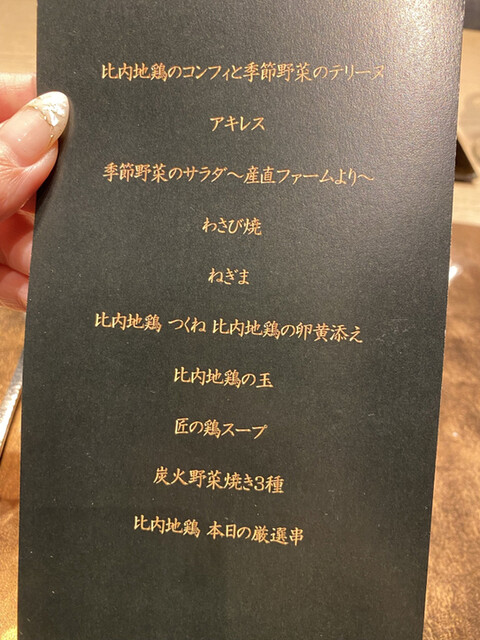 比内地鶏のコンフィと季節野菜のテリーヌ
アキレス
季節野菜のサラダ～産直ファームより～
わさび焼
ねぎま
比内地鶏 つくね 比内地鶏の卵黄添え
比内地鶏の玉
匠の鶏スープ
炭火野菜焼き3種
比内地鶏 本日の厳選串